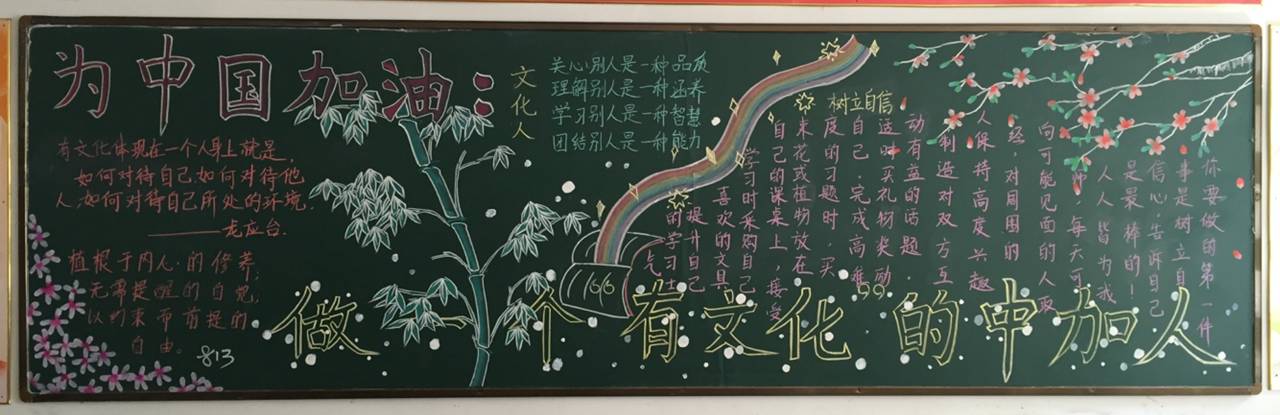 为中国加油：
有文化体现在一个人身上就是，
如何对待自己，如何对待他
人，如何对待自己所处的环境。
——龙应台
植根于内心的修养，
无需提醒的自觉，
以约束为前提的
自由。
813
文化人
关心别人是一种品质
理解别人是一种涵养
学习别人是一种智慧
团结别人是一种能力
166
树立自信
你要做的第一件
事是树立自
信心，告诉自己
是最棒的！
人人皆为我
，每天可
向可能见面的人取
经，对周围的
人保持高度兴趣
制造对双方互
动有益的话题，
适时买礼物奖励
自己，完成高难
度的习题时，买
束花或植物放在
自己的课桌上，接受
学习时采购自己
喜欢的文具
提升自己
的学习士
气
99
做一个有文化的中加人